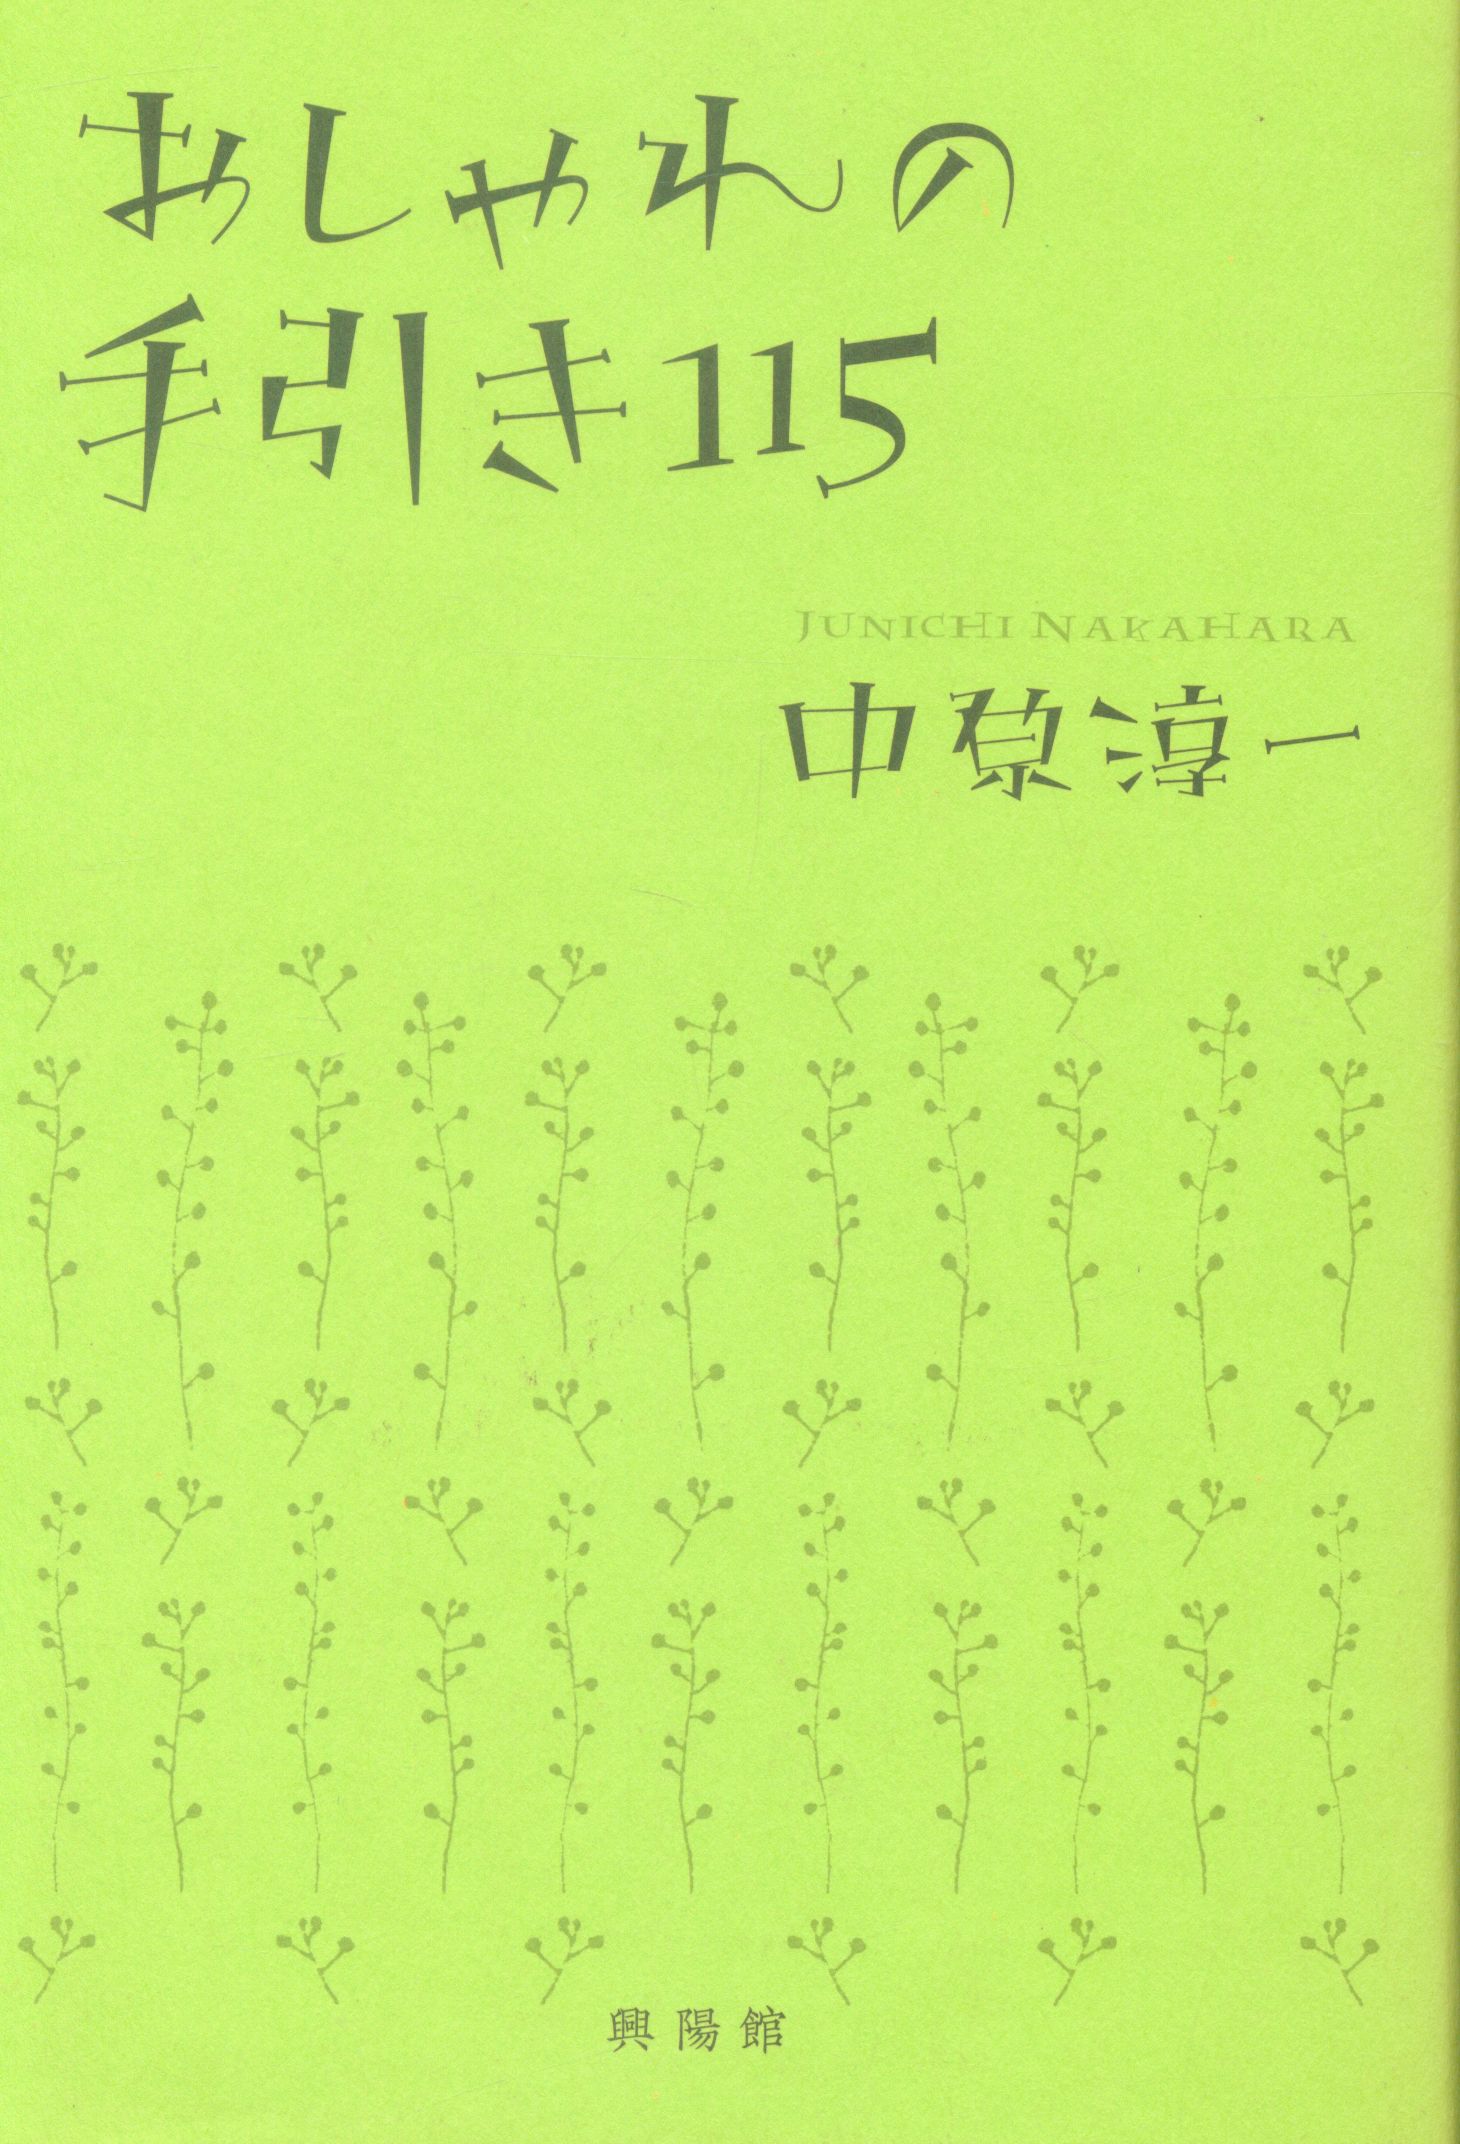 おしゃれの
手引き115
JUNICHI NAKAHARA
中原淳一
興陽館